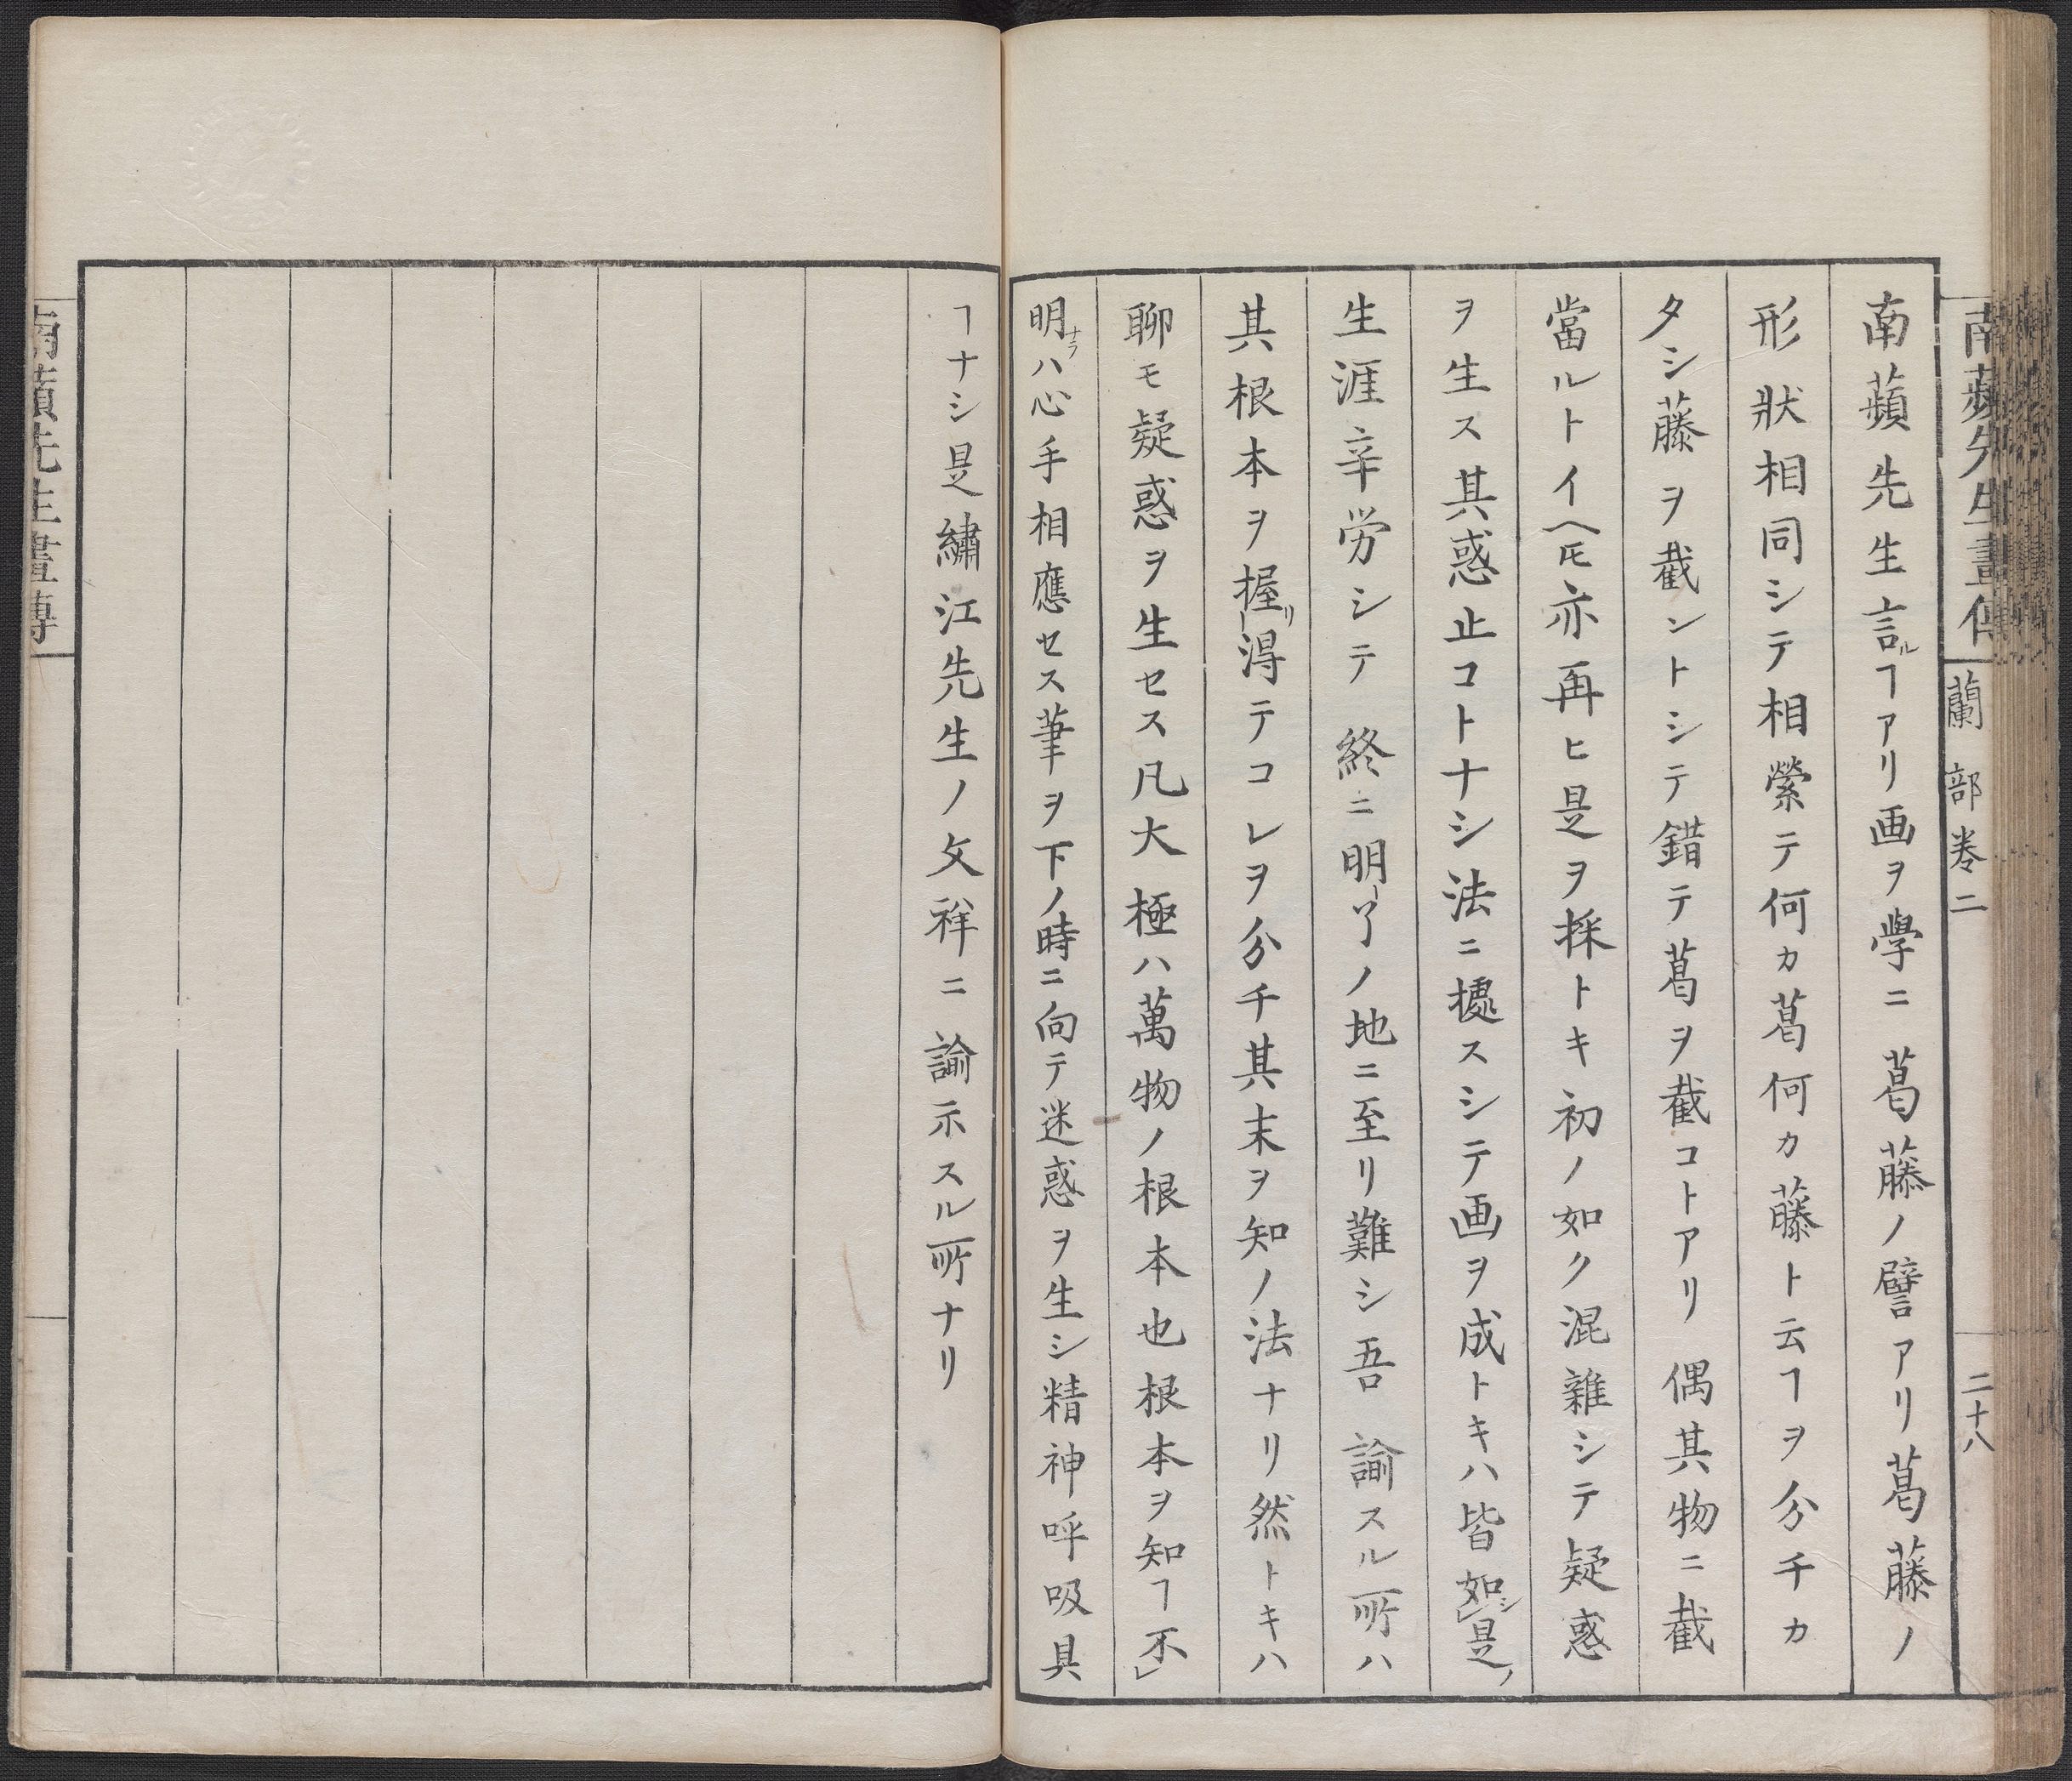 南蘋先生畫傳 蘭部卷二 二十八
南蘋先生言ルヿアリ画ヲ學ニ葛藤ノ譬アリ葛藤ノ
形狀相同シテ相縈テ何カ葛何カ藤ト云ヿヲ分チカ
タシ藤ヲ截ントシテ錯テ葛ヲ截コトアリ偶其物ニ截
當ルトイヘ𪜈亦再ヒ是ヲ採トキ初ノ如ク混雜シテ疑惑
ヲ生ス其惑止コトナシ法ニ據スシテ画ヲ成トキハ皆如シ是ノ
生涯辛労シテ終ニ明了ノ地ニ至リ難シ吾諭スル所ハ
其根本ヲ握リ得テコレヲ分チ其末ヲ知ノ法ナリ然トキハ
聊モ疑惑ヲ生セス凡大極ハ萬物ノ根本也根本ヲ知ヿ不
明ナラハ心手相應セス筆ヲ下ノ時ニ向テ迷惑ヲ生シ精神呼吸具
ヿナシ是繡江先生ノ文祥ニ諭示スル所ナリ
南蘋先生畫傳